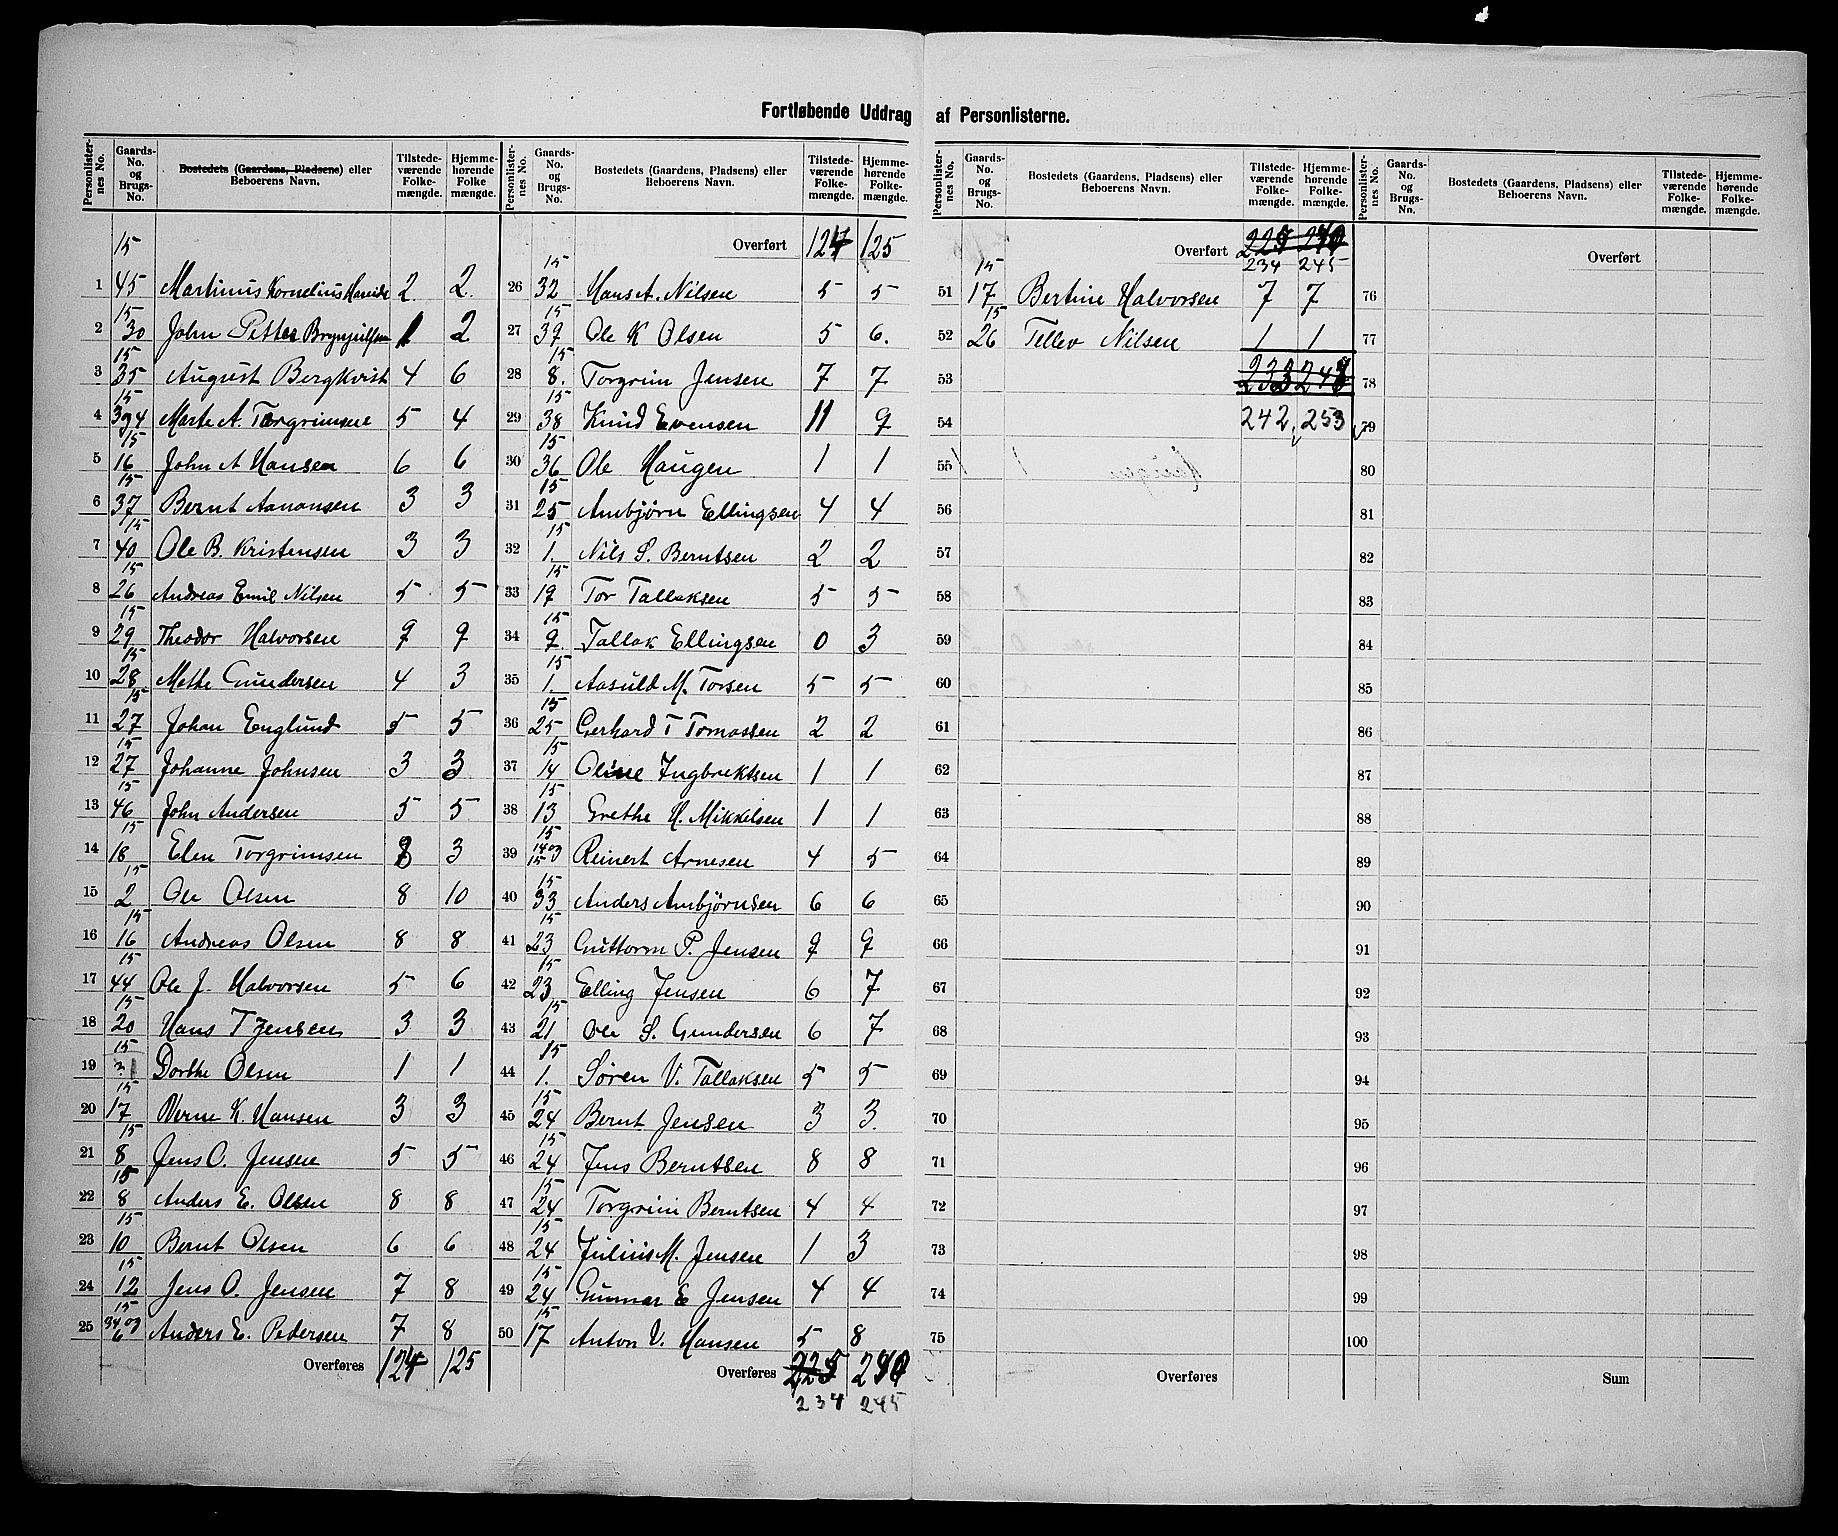 Fortløbende Uddrag af Personlisterne.
Personlisternes No. | Gaards-No. og Brugs-No. | Bostedets (Gaardens, Pladsens) eller Beboerens Navn. | Tilstedeværende Folkemængde. | Hjemmehørende Folkemængde.
1 | 15 45 | Martinus Kornelius | 2 | 2
2 | 15 30 | John Petter | 1 | 2
3 | 15 35 | August Bergkvist | 4 | 6
4 | 15 | Marte A. Torgrimsene | 5 | 4
5 | 15 16 | John A Hansen | 6 | 6
6 | 15 37 | Bernt Aanonsen | 3 | 3
7 | 15 40 | Ole B. Kristensen | 3 | 3
8 | 15 26 | Andreas Emil Nilsen | 5 | 5
9 | 15 29 | Theodor Halvorsen | 9 | 9
10 | 15 28 | Methe Gundersen | 4 | 3
11 | 15 27 | Johan Englund | 5 | 5
12 | 15 27 | Johanne Johnsen | 3 | 3
13 | 15 46 | John Andersen | 5 | 5
14 | 15 18 | Elen Torgrimsen | 3
15 | 15 2 | Ole Olsen | 8 | 10
16 | 15 16 | Andreas Olsen | 8 | 8
17 | 15 44 | Ole J. Halvorsen | 5 | 6
18 | 15 20 | Hans T Jensen | 3 | 3
19 | 15 | Dorthe Olsen | 1 | 1
20 | 15 17 | K. Hansen | 3 | 3
21 | 15 8 | Jens O. Jensen | 5 | 5
22 | 15 8 | Anders E. Olsen | 8 | 8
23 | 15 10 | Bernt Olsen | 6 | 6
24 | 15 12 | Jens O. Jensen | 7 | 8
25 | 15 34 og 6 | Anders E. Pedersen | 7 | 8
Overføres | 124 | 125
Personlisternes No. | Gaards-No. og Brugs-No. | Bostedets (Gaardens, Pladsens) eller Beboerens Navn. | Tilstedeværende Folkemængde. | Hjemmehørende Folkemængde.
Overført | 124 | 125
26 | 15 32 | Hans A. Nilsen | 5 | 5
27 | 15 39 | Ole K Olsen | 5 | 6.
28 | 15 8. | Torgrim Jensen | 7 | 7
29 | 15 38 | Knud Evensen | 11 | 9
30 | 15 36 | Ole Haugen | 1 | 1
31 | 15 25 | Anbjørn Ellingsen | 4 | 4
32 | 15 1. | Nils S. Berntsen | 2 | 2
33 | 15 19 | Tor Tallaksen | 5 | 5
34 | 15 9. | Tallak Ellingsen | 0 | 3
35 | 15 1. | Aasuld M. Torsen | 5 | 5
36 | 15 25 | Gerhard T Tomassen | 2 | 2
37 | 15 14 | Oline Ingbrektsen | 1 | 1
38 | 15 13 | Grethe H. Mikkelsen | 1 | 1
39 | 15 14 og 15 | Reinert Arnesen | 4 | 5
40 | 15 33 | Anders Anbjørnsen | 6 | 6
41 | 15 23 | Guttorm P. Jensen | 9 | 9
42 | 15 23 | Elling Jensen | 6 | 7
43 | 15 21 | Ole S. Gundersen | 6 | 7
44 | 15 1. | Søren V. Tallaksen | 5 | 5
45 | 15 24 | Bernt Jensen | 3 | 3.
46 | 15 24 | Jens Berntsen | 8 | 8
47 | 15 24 | Torgrim Berntsen | 4 | 4
48 | 15 24 | Julius M. Jensen | 1 | 3
49 | 15 24 | Gunnar E Jensen | 4 | 4
50 | 15 17 | Anton V. Hansen | 5 | 8
Overføres | 225
234 | 245
Personlisternes No. | Gaards-No. og Brugs-No. | Bostedets (Gaardens, Pladsens) eller Beboerens Navn. | Tilstedeværende Folkemængde. | Hjemmehørende Folkemængde.
Overført
234 | 245
51 | 15 17 | Bertine Halvorsen | 7 | 7
52 | 15 26 | Tellev Nilsen | 1 | 1
53 | 233
54 | 242 | 253
55
56
57
58
59
60
61
62
63
64
65
66
67
68
69
70
71
72
73
74
75
Overføres
Personlisternes No. | Gaards-No. og Brugs-No. | Bostedets (Gaardens, Pladsens) eller Beboerens Navn. | Tilstedeværende Folkemængde. | Hjemmehørende Folkemængde.
Overført
76
77
78
79
80
81
82
83
84
85
86
87
88
89
90
91
92
93
94
95
96
97
98
99
100
Sum